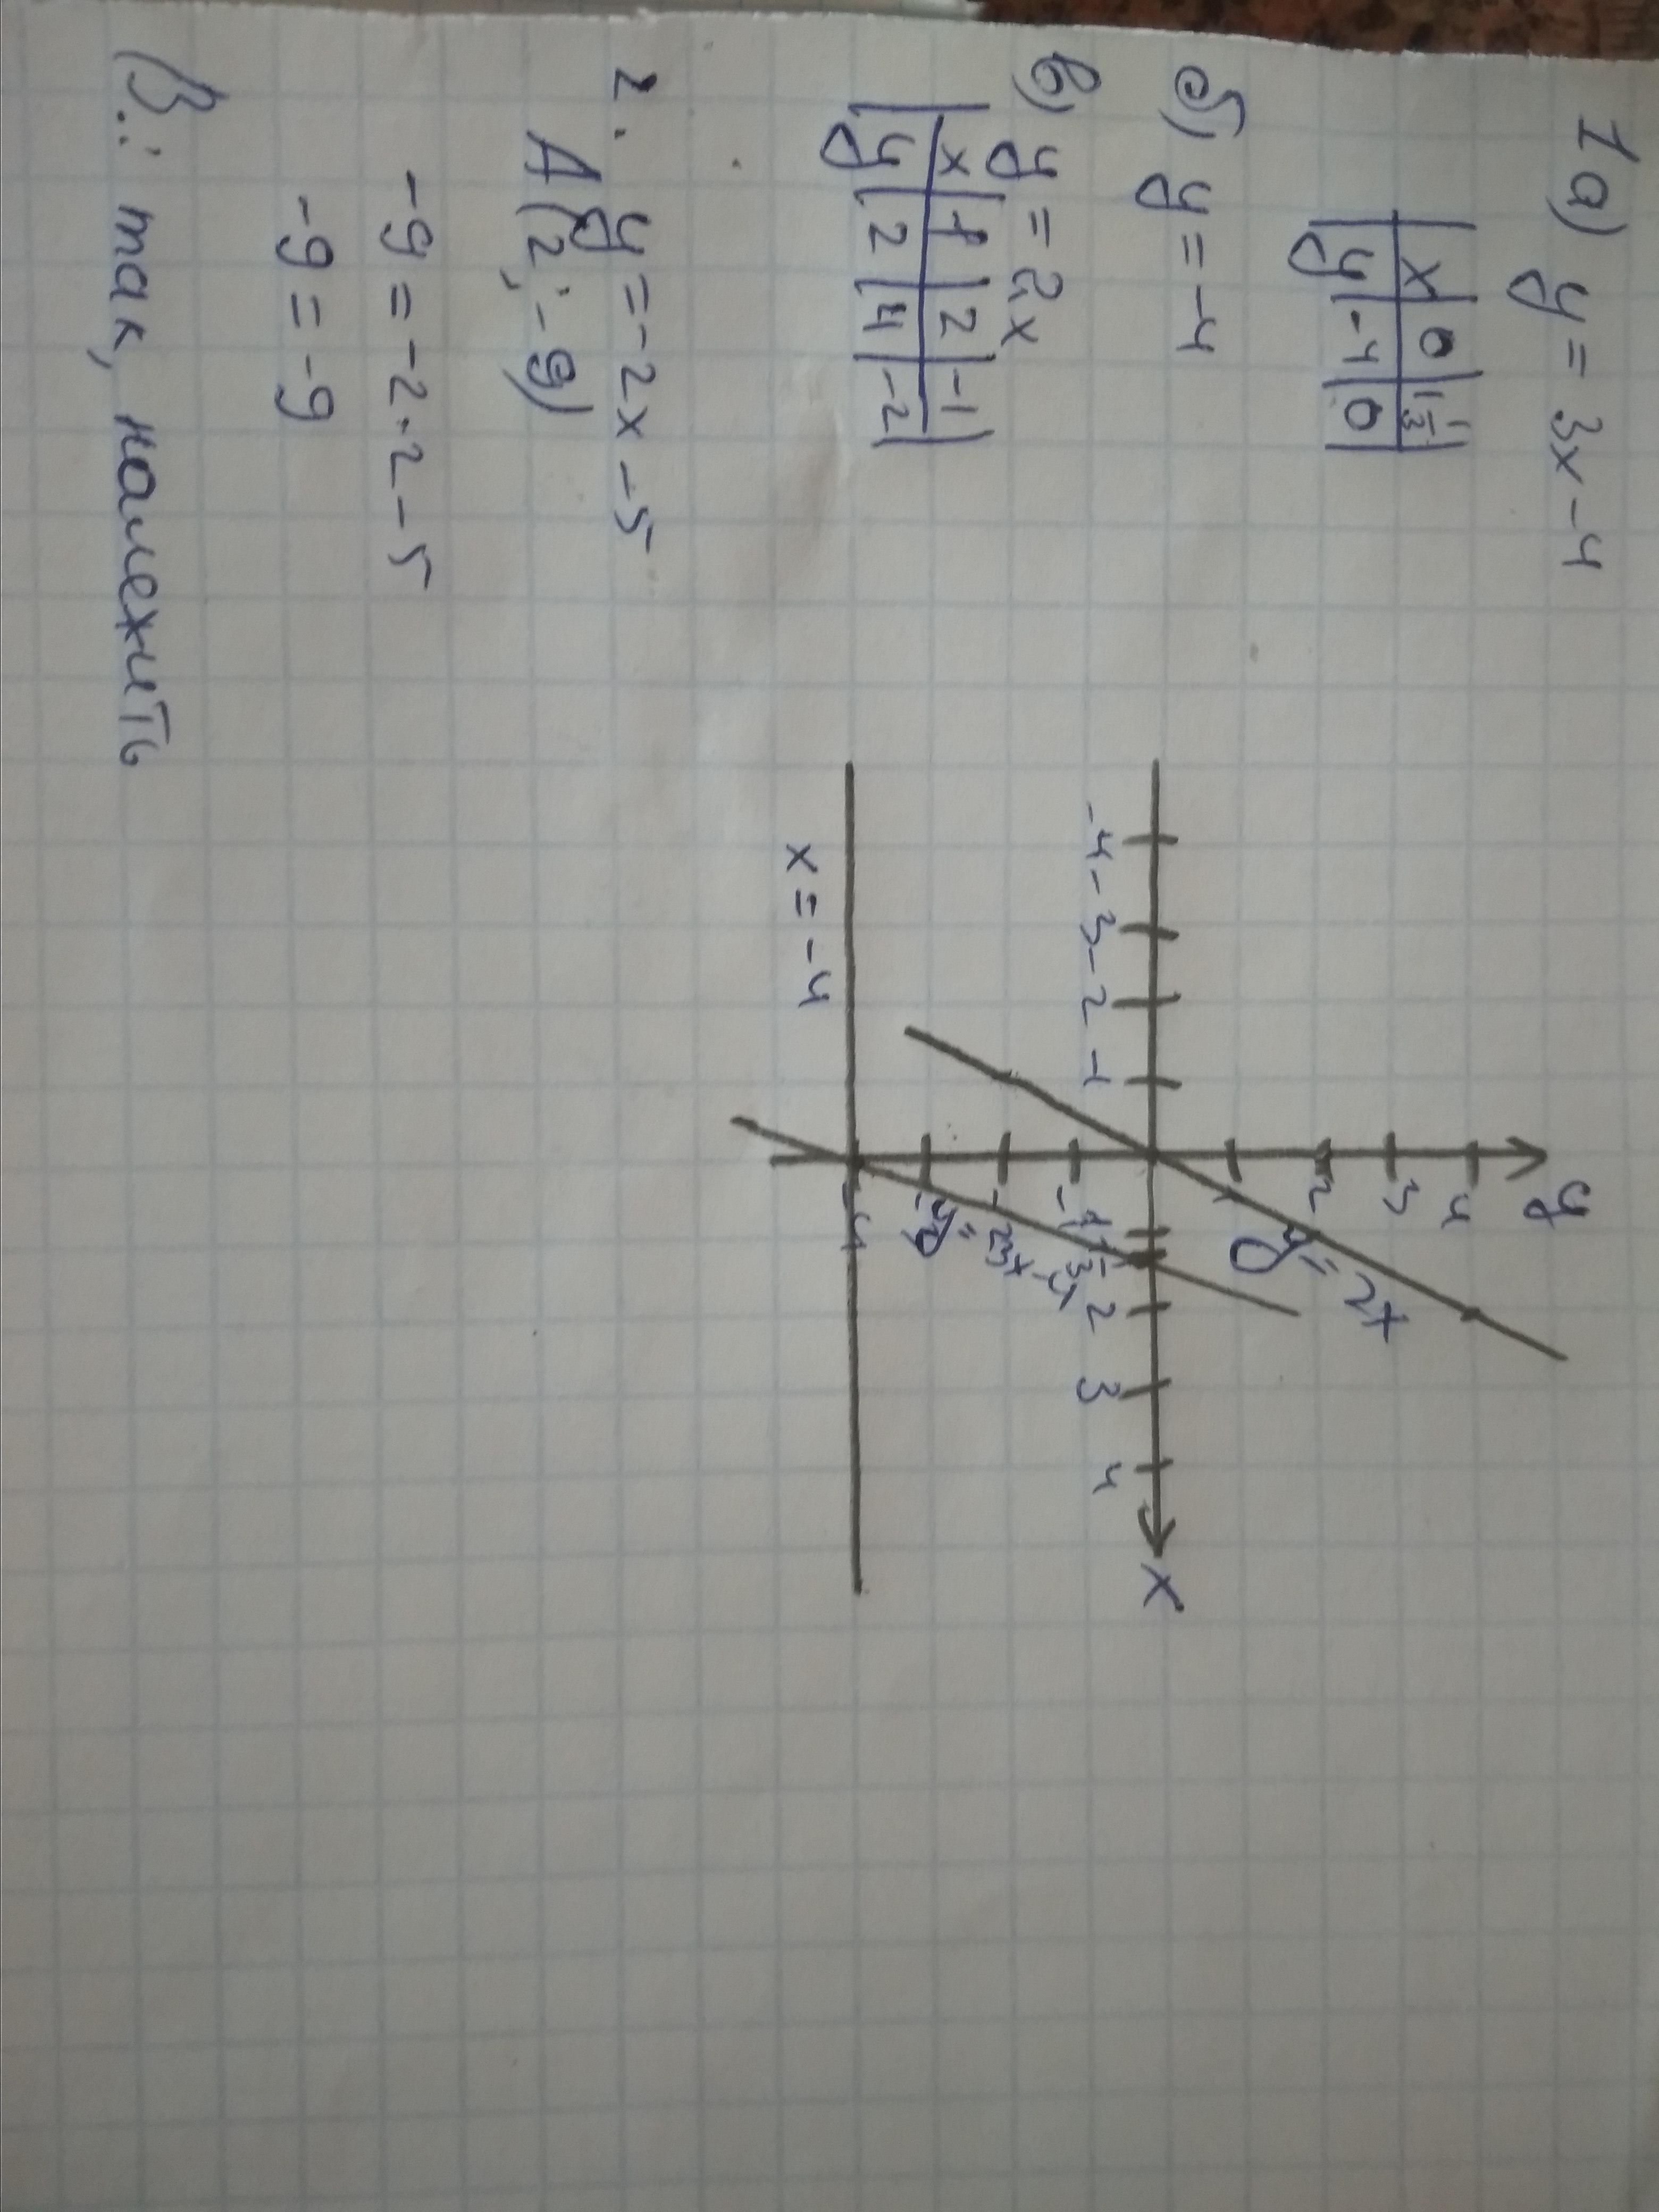 1 а) y = 3x - 4
x | 0 | 1 1/3
y | -4 | 0
б) y = -4
в) y = 2x
x | 1 | 2 | -1
y | 2 | 4 | -2
2. y = -2x - 5
A (2; -9)
-9 = -2·2-5
-9 = -9
В.: так, належить
y
4
3
2
1
y = 2x
-4 -3 -2 -1 1 1 1/3 2 3 4 x
-1
-2
-3
-4
y = 3x - 4
x = -4